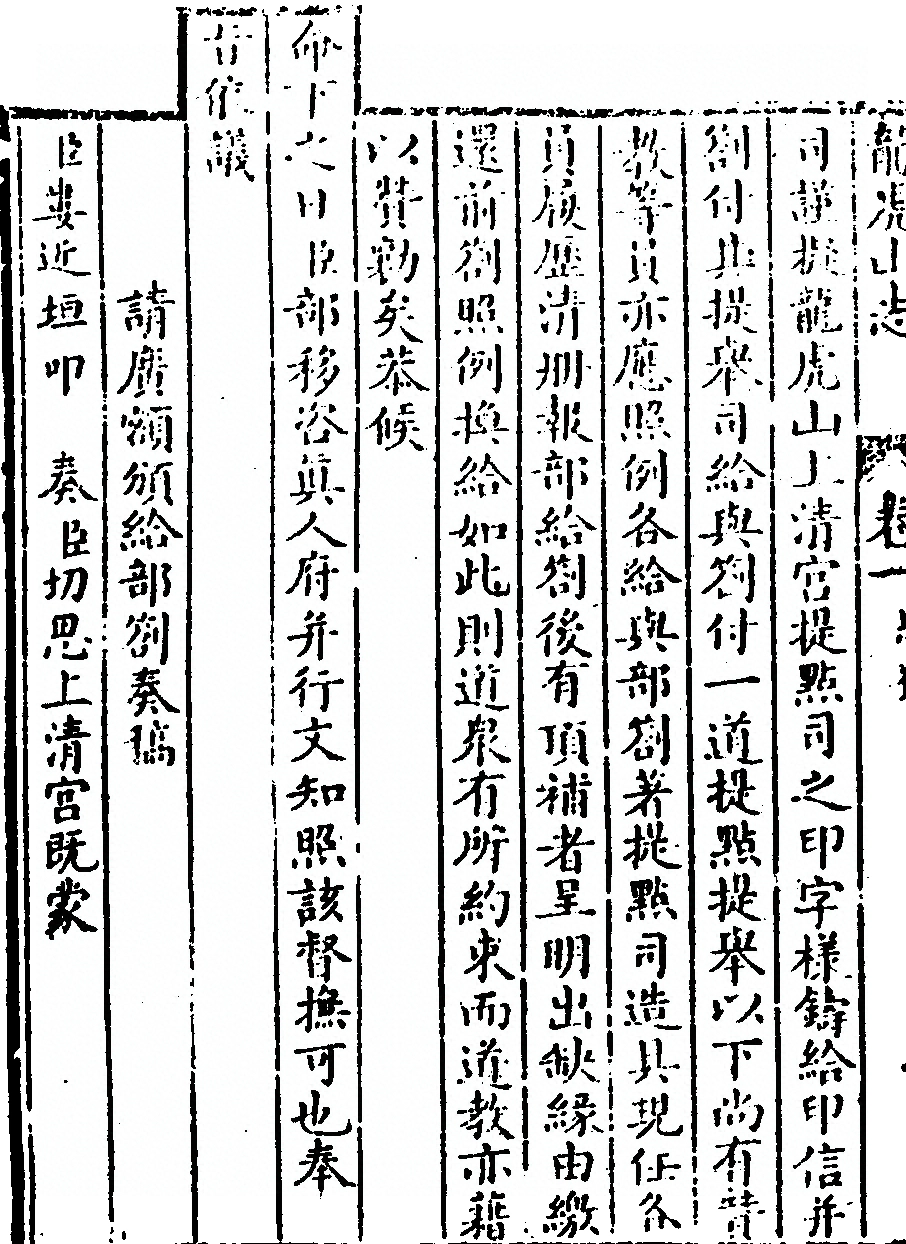 龍虎山志 卷一
司謹擬龍虎山上清宮提點司之印字樣鑄給印信并
劄付其提舉司給與劄付一道提點提舉以下尚有贊
教等員亦應照例各給與部劄著提點司造具現任各
員履歷清冊報部給劄後有頂補者呈明出缺緣由繳
還前劄照例換給如此則道眾有所約束而道教亦藉
以贊勷矣恭候
命下之日臣部移咨真人府并行文知照該督撫可也奉
旨依議
請廣額頒給部劄奏稿
臣婁近垣叩 奏臣切思上清宮既蒙